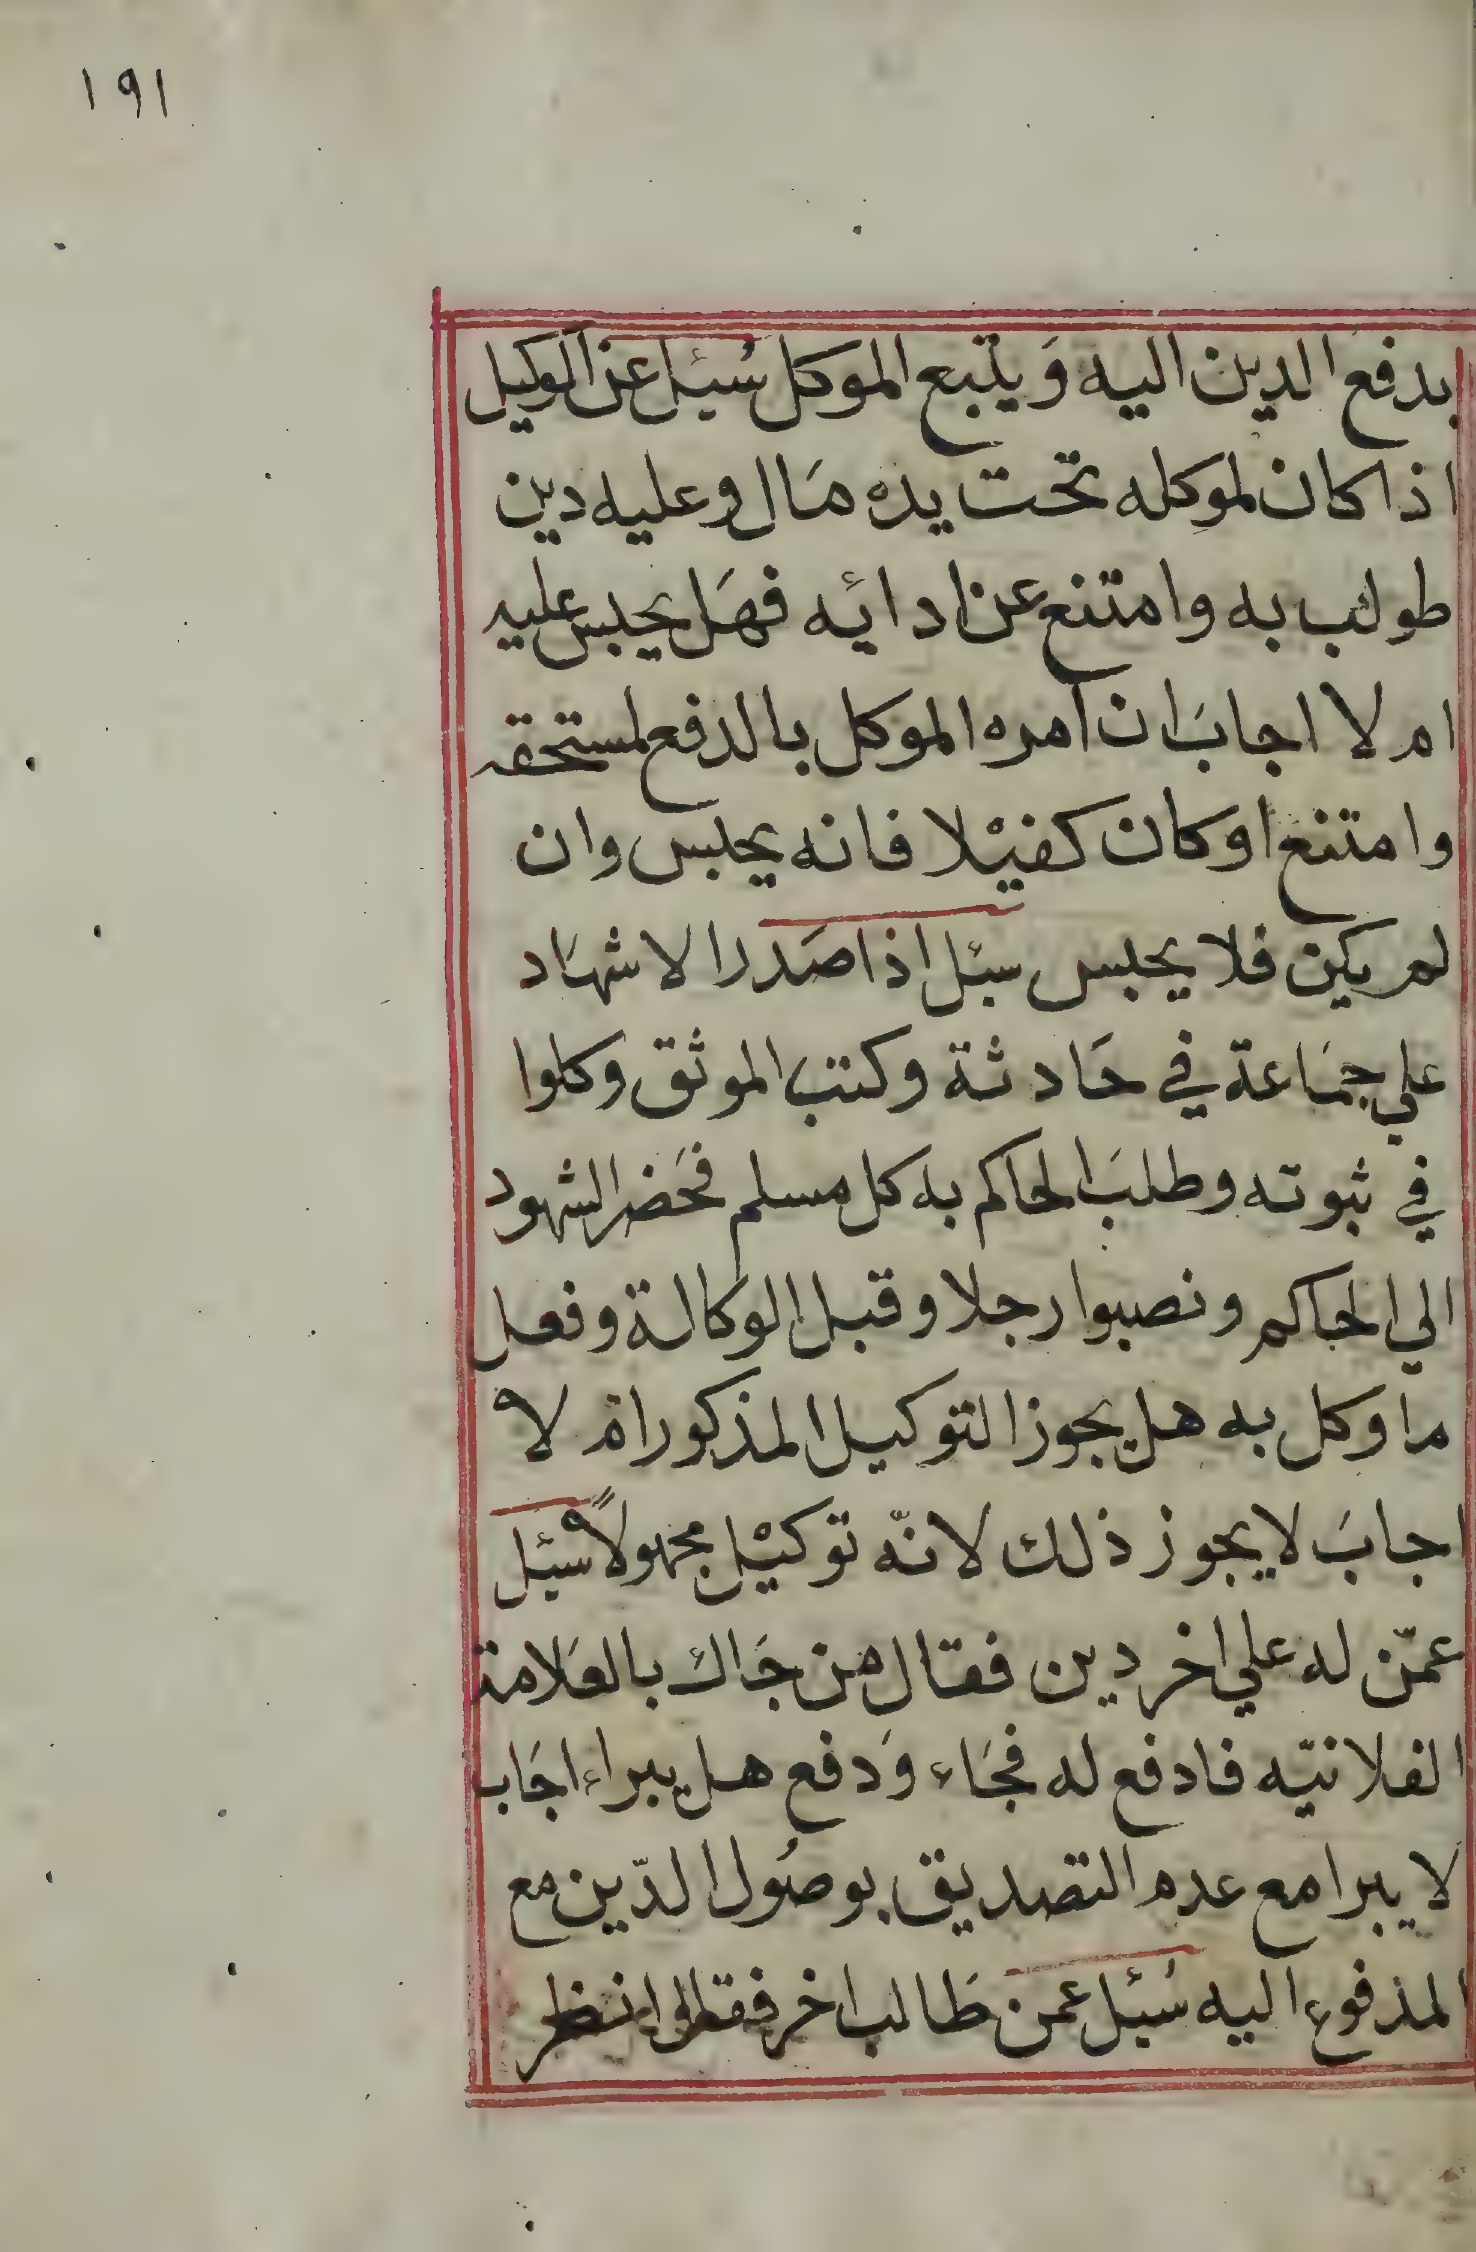 ١٩١
بدفع الدين اليه وَيتبع الموكل سُئل عن الوكيل
اذا كان لموكله تحت يده مَال وعليه دين
طولب به وامتنع عن ادائه فهَل يحبس عليه
ام لا اجابَ ان امره الموكل بالدفع لمستحقه
وامتنع او كان كفيْلا فانه يحبس وان
لم يكن فلا يحبس سئل اذا صَدر الاشهَاد
على جمَاعة في حَادثة وكتب الموثق وكلوا
في ثبوته وطلبَ الحاكم به كل مسلم فحَضر الشهود
الي الحاكم ونصبوا رجلا وقبل الوكالة وفعل
ما وكل به هل يجوز التوكيل المذكور ام لا
اجابَ لا يجوز ذلك لانّه توكيْل مجهولاً سئل
عمّن له علي اخر دين فقال من جَاك بالعَلامة
الفلانيّه فادفع له فجَاء وَدفع هل يبراء اجَاب
لا يبرا مع عدم التصديق بوصُول الدّين مع
المدفوع اليه سُئل عمن طَالب اخر فقال انظر